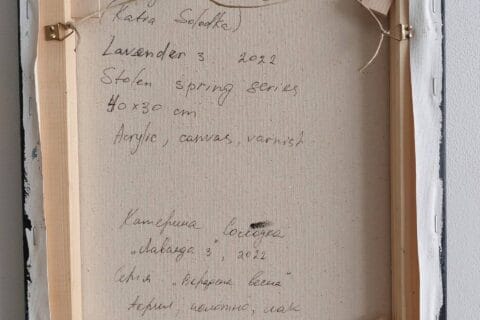 (Katia Solodka)
Lavender 3 2022
Stolen spring series
40x30 cm
Acrylic, canvas, varnish
Катерина Солодка
„Лаванда 3", 2022
Серія „Вкрадена весна"
акрил, полотно, лак